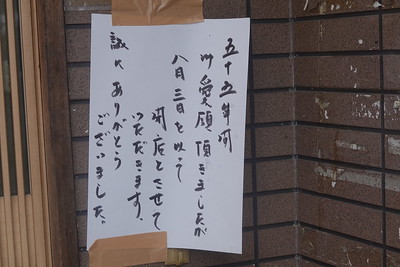 五十五年間
御愛顧頂きましたが
八月三日を以って
閉店とさせて
いただきます、
誠に ありがとう
ございました。